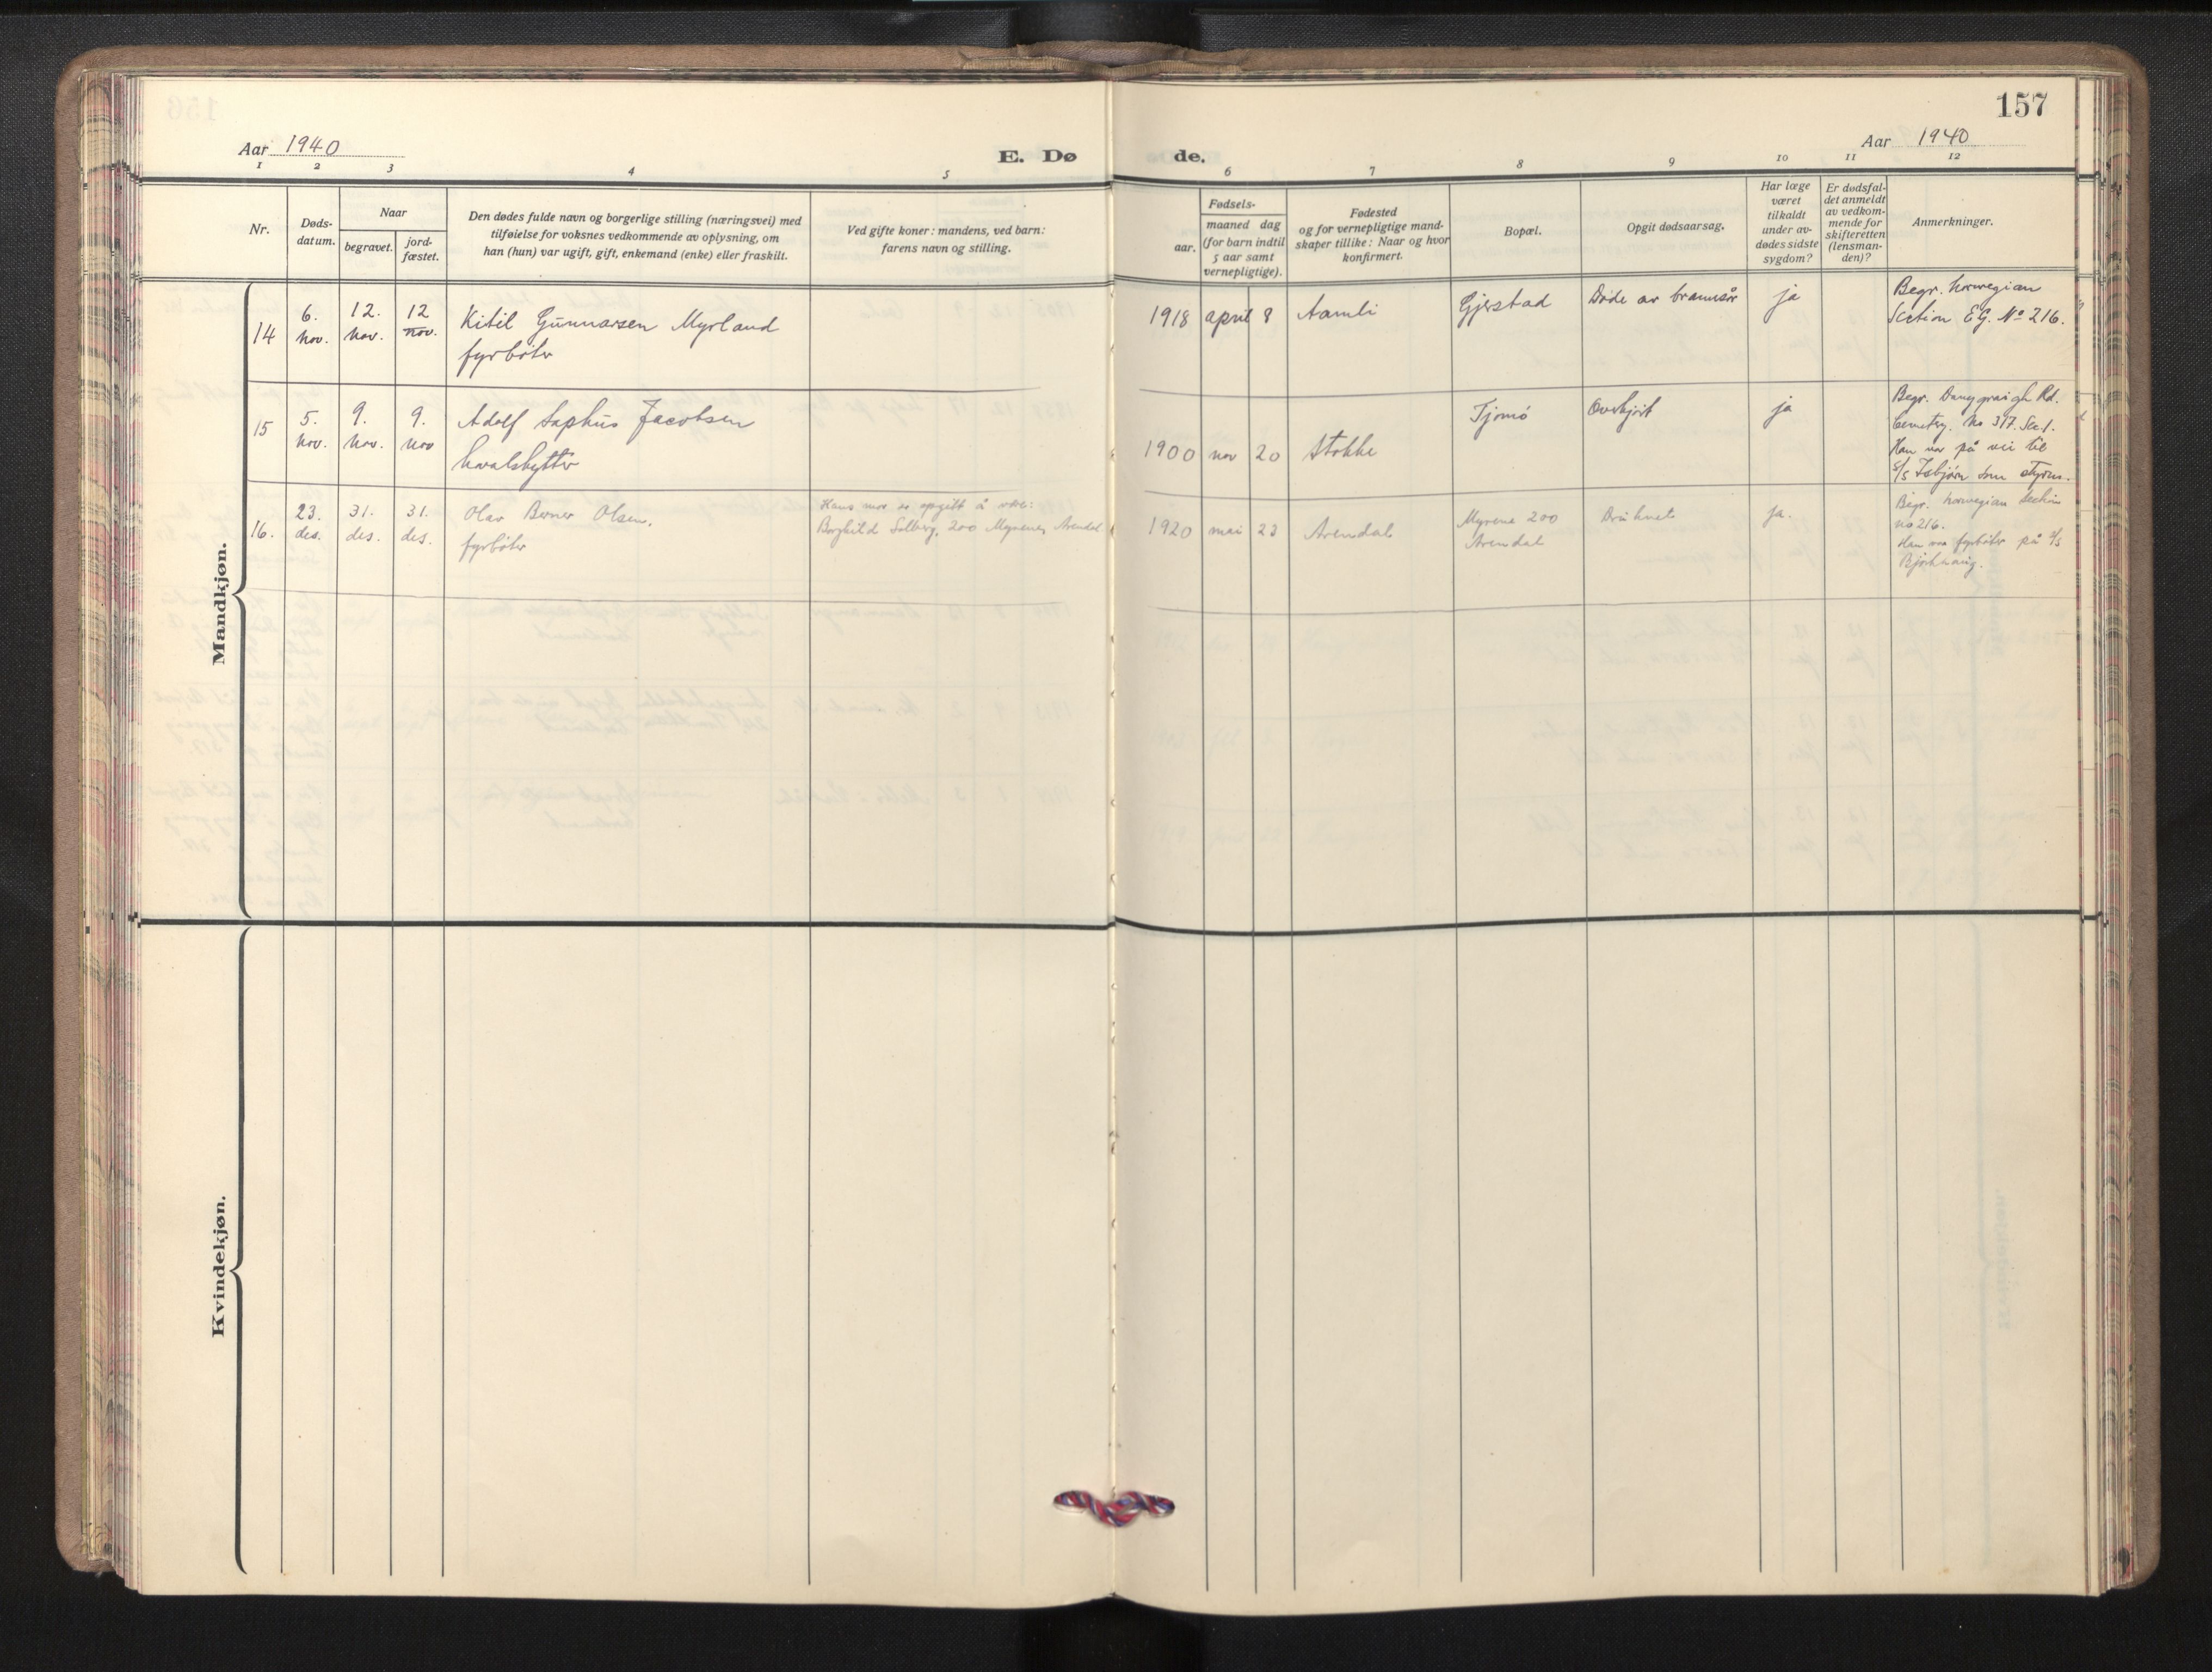 157
Aar 1940
E. Dø
de.
Aar 1940
1 2 3 4 5
6 7 8 9 10 11 12
Nr.
Døds-
datum.
Naar
begravet.
jord-
fæstet.
Den dødes fulde navn og borgerlige stilling (næringsvei) med
tilføielse for voksnes vedkommende av oplysning, om
han (hun) var ugift, gift, enkemand (enke) eller fraskilt.
Ved gifte koner: mandens, ved barn:
farens navn og stilling.
Fødsels-
aar.
maaned dag
(for barn indtil
5 aar samt
vernepligtige).
Fødested
og for vernepligtige mand-
skaper tillike: Naar og hvor
konfirmert.
Bopæl.
Opgit dødsaarsag.
Har læge
været
tilkaldt
under av-
dødes sidste
sygdom?
Er dødsfal-
det anmeldt
av vedkom-
mende for
skifteretten
(lensman-
den)?
Anmerkninger.
Mandkjøn.
14
6.
nov.
12.
nov.
12
nov.
Kitil Gunnarsen Myrland
fyrbøter
1918 april 8
Aamli
Gjerstad
Døde av brannsår
ja
Begr. Norwegian
Section EG. No 216.
15
5.
nov.
9.
nov.
9.
nov
Adolf Sophus Jacobsen
hvalskytter
1900 nov 20
Stokke
Tjømø
Overkjørt
ja
Begr. Danygraigh Rd.
Cemetry. No 317. Sec1.
Han var på vei til
s/s Isbjørn som styrm.
16.
23.
des.
31.
des.
31.
des.
Olav Berner Olsen.
fyrbøter
Hans mor er opgitt å være:
Borghild Solberg, 200 Myrene, Arendal
1920 mai 23
Arendal
Myrene 200
Arendal
Druknet
ja.
Begr. Norwegian Section
no 216.
Han var fyrbøter på s/s
Kvindekjøn.